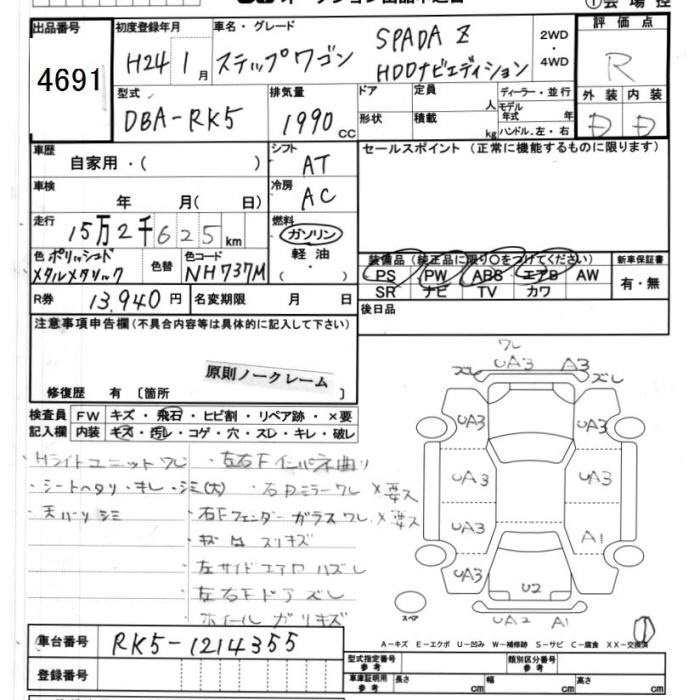 出品番号 4691
初度登録年月 H24 1月
車名・グレード ステップワゴン SPADA Z HDDナビエディション
2WD・4WD
評価点 R
外装 内装
D D
型式 DBA-RK5
排気量 1990 CC
ドア 形状
定員 人
積載 kg
ディーラー・並行
モデル年式 年
ハンドル.左・右
車歴 自家用・( )
シフト AT
セールスポイント(正常に機能するものに限ります)
車検 年 月( 日)
冷房 AC
走行 15万2千625km
燃料 ガソリン 軽油・( )
色 ポリッシュド メタルメタリック
色替
色コード NH737M
装備品(純正品に限り○をつけてください)
PS PW ABS エアB AW
SR ナビ TV カワ
新車保証書 有・無
R券 13,940円
名変期限 月 日
後日品
注意事項申告欄(不具合内容等は具体的に記入して下さい)
原則ノークレーム
修復歴 有〔箇所 〕
検査員記入欄
FW キズ・飛石・ヒビ割・リペア跡・×要
内装 キズ・汚レ・コゲ・穴・スレ・キレ・破レ
・Hライトユニットワレ ・左右Fインパネ曲り
・シートヘタリ・キレ・シミ(大) ・右Dミラーワレ ×要ス
・天バリシミ ・右Fフェンダーガラスワレ ×要ス
スリキズ
左サイドエアロハズレ
左右Fドアズレ
ホイールガリキズ
ワレ
ズレ UA3 A3 ズレ
UA3 UA3
UA3 UA3
UA3 A1
UA3
U2
UA2 A1
スペア
A-キズ E-エクボ U-凹み W-補修跡 S-サビ C-腐食 XX-交換済
車台番号 RK5-1214355
登録番号
型式指定番号 参考
類別区分番号 参考
車庫証明用 参考 長さ cm 幅 cm 高さ cm